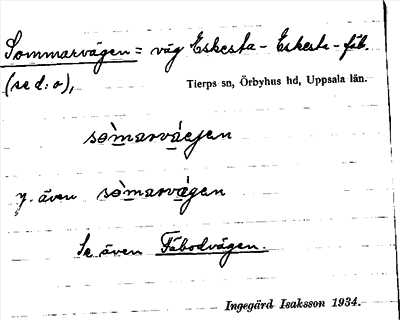 Sommarvägen = väg Eskesta - Eskesta-fäb.
(se d:o), Tierps sn, Örbyhus hd, Uppsala län.
sòmarvácjen
y. även sòmarvágen
Se även Fäbodvägen.
Ingegärd Isaksson 1934.